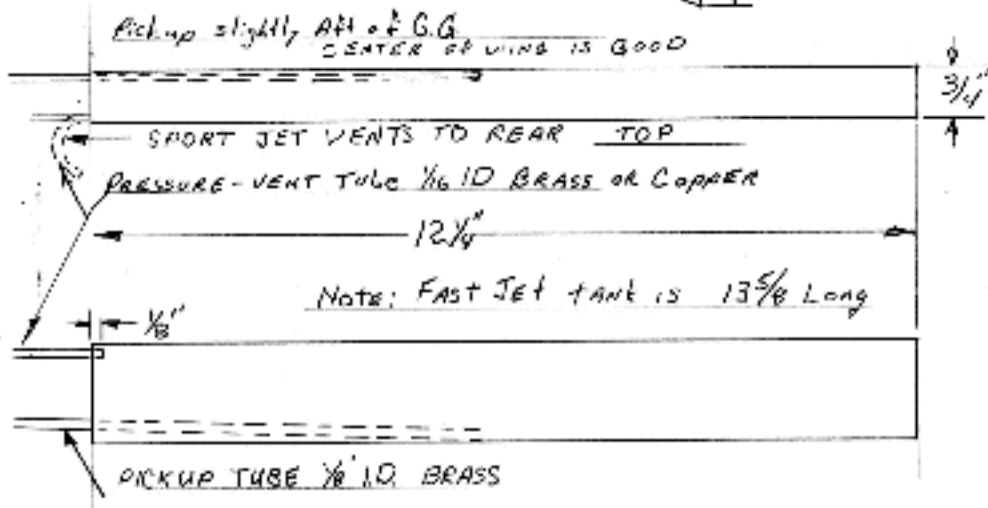 Pickup slightly Aft of C.G.
CENTER OF WING IS GOOD
3/4"
SPORT JET VENTS TO REAR TOP
PRESSURE-VENT TUBE 1/16 ID BRASS OR COPPER
12 1/4"
Note: FAST JET tANK is 13 5/8 Long
1/8"
PICKUP TUBE 1/8" I.D. BRASS